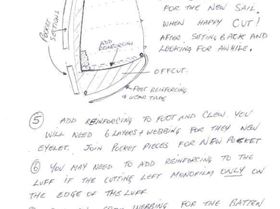 FOR THE NEW SAIL.
WHEN HAPPY CUT!
AFTER SITTING BACK AND
LOOKING FOR AWHILE.
POCKET
SECTIONS
ADD
REINFORCING
OFFCUT.
FOOT REINFORCING
& WEAR TAPE
5 ADD REINFORCING TO FOOT AND CLEW YOU
WILL NEED 6 LAYERS & WEBBING FOR THEY NEW
EYELET. JOIN POCKET PIECES FOR NEW POCKET
6 YOU MAY NEED TO ADD REINFORCING TO THE
LUFF IF THE CUTTING LEFT MONOFILM ONLY ON
THE EDGE OF THE LUFF
WEBBING FOR THE BATTEN